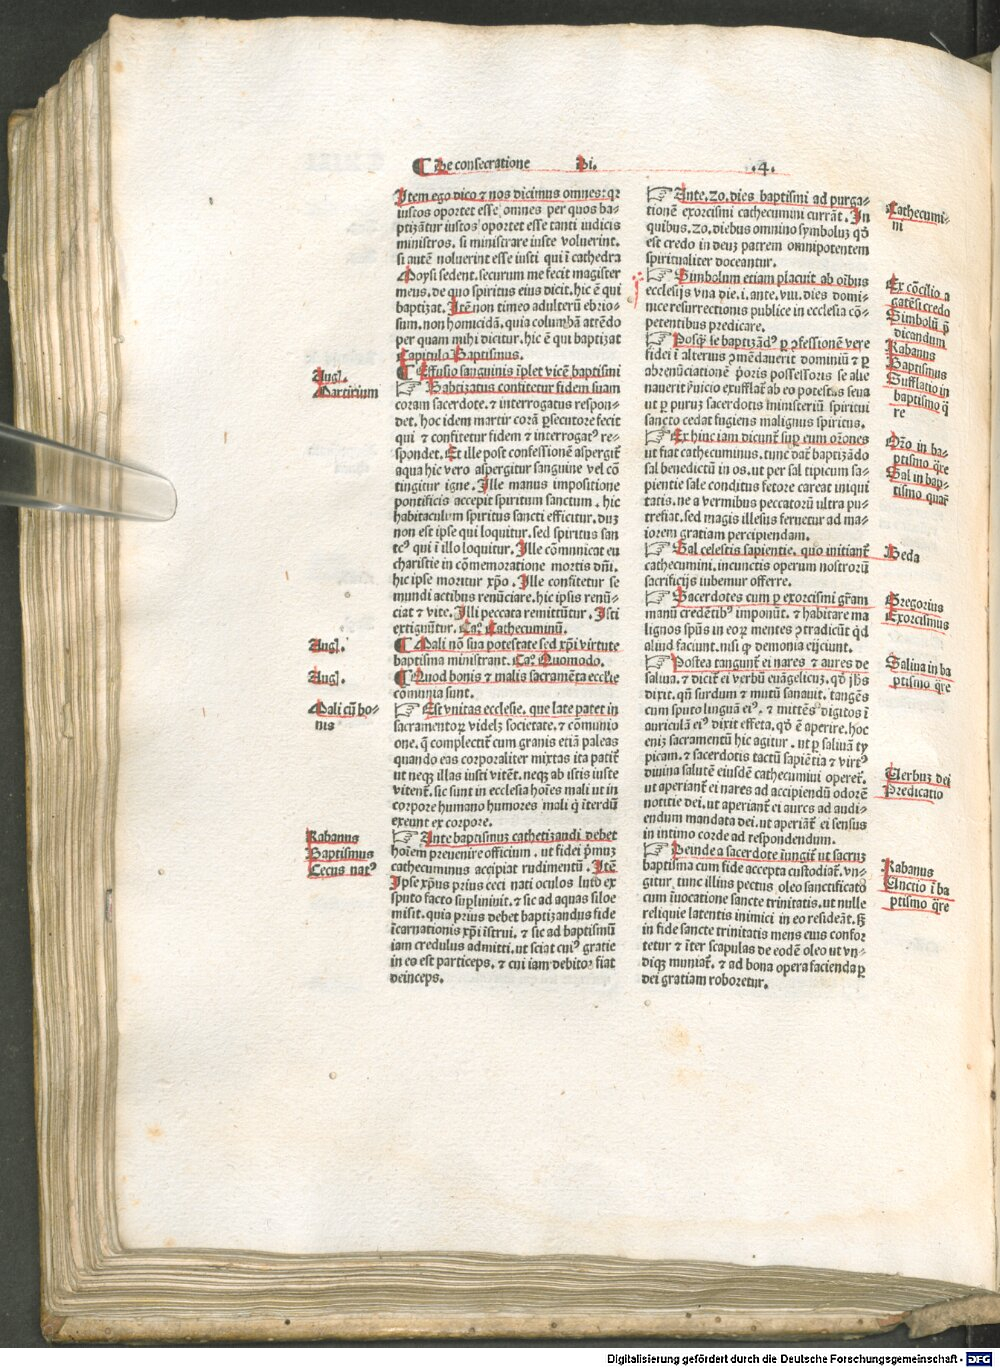 ¶ De consecratione Di. .4.
Item ego dico ⁊ nos dicimus omnes: qꝛ
iustos oportet esse omnes per quos ba-
ptizātur iustos oportet esse tanti iudicis
ministros. si ministrare iuste voluerint.
si autē noluerint esse iusti qui ī cathedra
Moysi sedent. securum me fecit magister
meus. de quo spiritus eius dicit. hic ē qui
baptizat. Itē non timeo adulterū ebrio-
sum. non homicidā. quia columbā attēdo
per quam mihi dicitur. hic ē qui baptizat
Capitulo Baptismus.
¶ Effusio sanguinis īplet vicē baptismi
☞ Babtizatus confitetur fidem suam
coram sacerdote. ⁊ interrogatus respon-
det. hoc idem martir corā ꝑsecutore fecit
qui ⁊ confitetur fidem ⁊ interrogatꝰ re-
spondet. Et ille post confessionē aspergit̄
aqua hic vero aspergitur sanguine vel cō
tingitur igne. Ille manus impositione
pontificis accepit spiritum sanctum. hic
habitaculum spiritus sancti efficitur. duꝫ
non est ipse qui loquitur. sed spiritus san
tcꝰ qui ī illo loquitur. Ille cōmunicat eu
charistie in cōmemoratione mortis dn̄i.
hic ipse moritur xp̄o. Ille confitetur se
mundi actibus renūciare. hic ipsis renū-
ciat ⁊ vite. Illi peccata remittūtur. Isti
extiguūtur. Ca. Cathecuminū.
¶ Mali nō sua potestate sed xp̄i virtute
baptisma ministrant. Ca. Quomodo.
¶ Quod bonis ⁊ malis sacramēta eccl̄ie
cōmunia sunt.
☞ Est vnitas ecclesie. que late patet in
sacramentoꝝ videlꝫ societate. ⁊ cōmunio
one. q̄ complectit̄ cum granis etiā paleas
quando eas corporaliter mixtas ita patit̄
ut neqꝫ illas iusti vitēt. neqꝫ ab istis iuste
vitent̄. sic sunt in ecclesia hoīes mali ut in
corpore humano humores mali q̄ īterdū
exeunt ex corpore.
☞ Ante baptismuꝫ cathetizandi debet
hoīem preuenire officium. ut fidei pͥmuꝫ
cathecuminus accipiat rudimentū. Itē
Ipse xp̄us prius ceci nati oculos luto ex
sputo facto suꝑliniuit. ⁊ sic ad aquas siloe
misit. quia prius debet baptizandus fide
īcarnationis xp̄i īstrui. ⁊ sic ad baptismū
iam credulus admitti. ut sciat cuiꝰ gratie
in eo est particeps. ⁊ cui iam debitor fiat
deinceps.
Augꝭ.
Martirium
Augꝭ.
Augꝭ.
Mali cū bo-
nis
Rabanus
Baptismus
Cecus natꝰ
☞ Ante. zo. dies baptismi ad purga-
tionē exorcismi cathecumini currāt. In
quibus. zo. diebus omnino symboluꝫ qd̄
est credo in deuꝫ patrem omnipotentem
spiritualiter doceantur.
☞ Simbolum etiam placuit ab oībus
ecclesijs vna die. i. ante. viii. dies domi-
nice resurrectionis publice in ecclesia cō-
petentibus predicare.
☞ Posqͣ se baptizādꝰ ꝑ ꝓfessionē vere
fidei ī alterius ꝯmēdauerit dominiū ⁊ ꝑ
abrenūciationē pͥoris possessoris se alie
nauerit p̄nicio exufflat̄ ab eo potestas seua
ut ꝑ puruꝫ sacerdotis ministeriū spiritui
sancto cedat fugiens malignus spiritus.
☞ Ex hinc iam dicunt̄ suꝑ eum ōrones
ut fiat cathecuminus. tunc dat̄ baptizādo
sal benedictū in os. ut per sal tipicum sa-
pientie sale conditus fetore careat iniqui
tatis. ne a vermibus peccatorū ultra pu-
trefiat. sed magis illesus seruetur ad ma-
iorem gratiam percipiendam.
☞ Sal celestis sapientie. quo initiant̄
cathecumini. in cunctis operum nostrorū
sacrificijs iubemur offerre.
☞ Sacerdotes cum ꝑ exorcismi gr̄am
manū credētibꝰ imponūt. ⁊ habitare ma
lignos sp̄us in eoꝝ mentes ꝯtradicūt qd
aliud faciunt. nisi ꝙ demonia eijciunt.
☞ Postea tangunt̄ ei nares ⁊ aures de
saliua. ⁊ dicit̄ ei verbū euāgelicuꝫ. qd̄ jh̄s
dixit. qn̄ surdum ⁊ mutū sanauit. tangēs
cum sputo linguā eiꝰ. ⁊ mittēs digitos ī
auriculā eiꝰ dixit effeta. qd̄ ē aperire. hoc
eniꝫ sacramentū hic agitur. ut ꝑ saliuā ty
picam. ⁊ sacerdotis tactū sapiētia ⁊ virtꝰ
diuina salutē eiusdē cathecumini operet̄.
ut aperiant̄ ei nares ad accipiendū odorē
notitie dei. ut aperiant̄ ei aures ad audi-
endum mandata dei. ut aperiāt̄ ei sensus
in intimo corde ad respondendum.
☞ Deinde a sacerdote iungit̄ ut sacruꝫ
baptisma cum fide accepta custodiat̄. vn-
gitur tunc illius pectus oleo sanctificato
cum īuocatione sancte trinitatis. ut nulle
reliquie latentis inimici in eo resideāt. sꝫ
in fide sancte trinitatis mens eius confor
tetur ⁊ īter scapulas de eodē oleo ut vn-
diqꝫ muniat̄. ⁊ ad bona opera facienda ꝑ
dei gratiam roboretur.
Cathecumi-
ni
Ex cōcilio a
gatēsi credo
Simbolū p̄
dicandum
Rabanus
Baptismus
Sufflatio in
baptismo q̄
re
Oro in ba-
ptismo q̄re
Sal in bap-
tismo quar̄
Beda
Gregorius
Exorcismus
Saliua in ba
ptismo q̄re
Uerbuꝫ dei
Predicatio
Rabanus
Unctio ī ba
ptismo q̄re
Digitalisierung gefördert durch die Deutsche Forschungsgemeinschaft - DFG